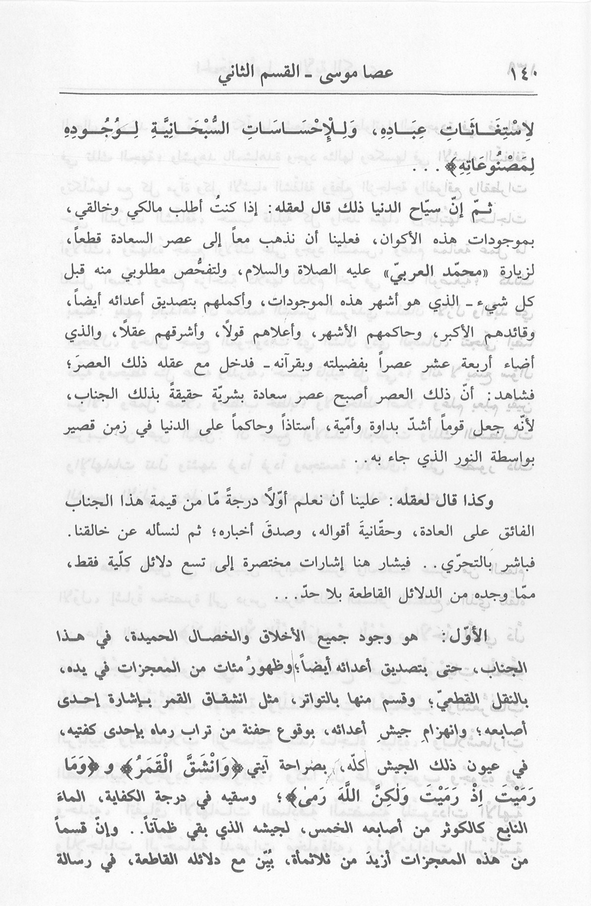 ١٤٠ عصا موسى ـ القسم الثاني
لِاسْتِغَـاثَـاتِ عِبَـادِهِ، وَلِـلْإِحْسَـاسَـاتِ السُّبْحَـانِيَّـةِ لِـوُجُـودِهِ
لِمَصْنُوعَاتِهِ﴾ . . .
ثـمّ إنّ سيّاح الدنيا ذلك قال لعقله: إذا كنتُ أطلب مالكي وخالقي،
بموجودات هذه الأكوان، فعلينا أن نذهب معاً إلى عصر السعادة قطعاً،
لزيارةِ «محمّد العربيّ» عليه الصلاة والسلام، ولتفحُّص مطلوبي منه قبل
كل شيء ـ الذي هو أشهر هذه الموجودات، وأكملهم بتصديق أعدائه أيضاً،
وقائدهم الأكبر، وحاكمهم الأشهر، وأعلاهم قولًا، وأشرقهم عقلًا، والذي
أضاء أربعة عشر عصراً بفضيلته وبقرآنه ـ فدخل مع عقله ذلك العصرَ؛
فشاهد: أنّ ذلك العصر أصبح عصر سعادة بشريّة حقيقةً بذلك الجناب،
لأنّه جعل قوماً أشدّ بداوة وأمّية، أستاذاً وحاكماً على الدنيا في زمن قصير
بواسطة النور الذي جاء به..
وكذا قال لعقله: علينا أن نعلم أوّلًا درجةً مّا من قيمة هذا الجناب
الفائق على العادة، وحقّانيةَ أقواله، وصدقَ أخباره؛ ثم لنسأله عن خالقنا.
فباشر بالتحرّي.. فيشار هنا إشارات مختصرة إلى تسع دلائل كلّية فقط،
ممّا وجده من الدلائل القاطعة بلا حدّ...
الأوّل: هو وجود جميع الأخلاق والخصال الحميدة، في هذا
الجناب، حتى بتصديق أعدائه أيضاً؛ وظهورُ مئات من المعجزات في يده،
بالنقل القطعيّ؛ وقسم منها بالتواتر، مثل انشقـاق القمر بـإشارة إحـدى
أصابعه؛ وانهزام جيش أعدائه، بوقوع حفنة من تراب رماه بإحدى كفتيه،
في عيون ذلك الجيش كلّه، بصراحة آيتي ﴿وَانْشَقَّ الْقَمَرُ﴾ و ﴿وَمَا
رَمَيْتَ إِذْ رَمَيْتَ وَلٰكِنَّ اللَّهَ رَمىٰ﴾؛ وسقيه في درجة الكفاية، الماءَ
النابع كالكوثر من أصابعه الخمس، لجيشه الذي بقي ظمآناً.. وإنّ قسماً
من هذه المعجزات أزيدَ من ثلاثمأة، بيّن مع دلائله القاطعة، في رسالة